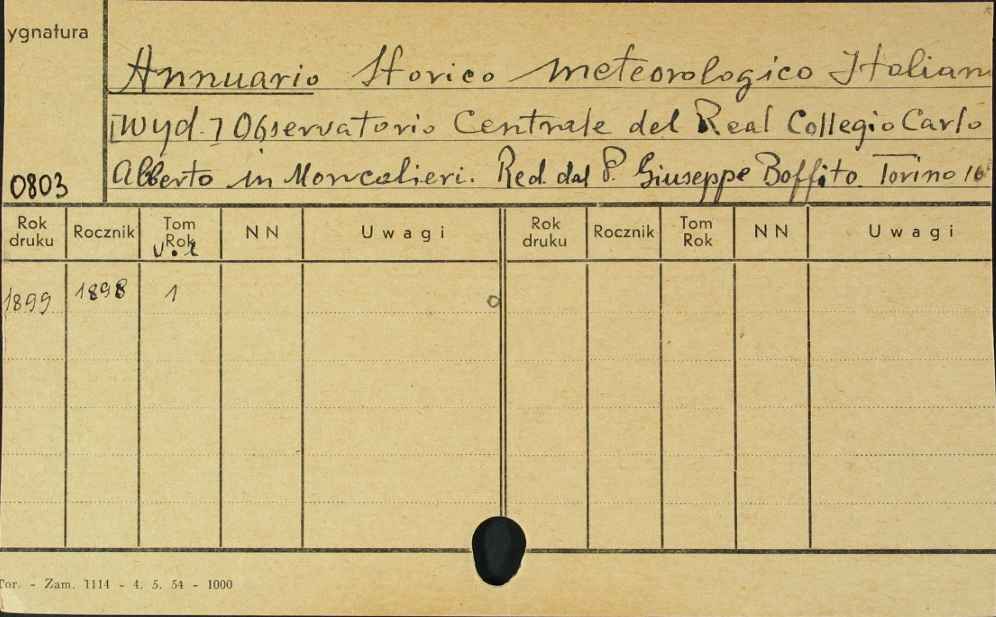 ygnatura
Annuario Storico meteorologico Italian
[Wyd.] Observatorio Centrale del Real Collegio Carlo
Alberto in Moncalieri. Red. dal P. Giuseppe Boffito. Torino 16
0803
Rok druku Rocznik Tom Rok vol NN Uwagi Rok druku Rocznik Tom Rok NN Uwagi
1899 1898 1
Tor. - Zam. 1114 - 4. 5. 54 - 1000